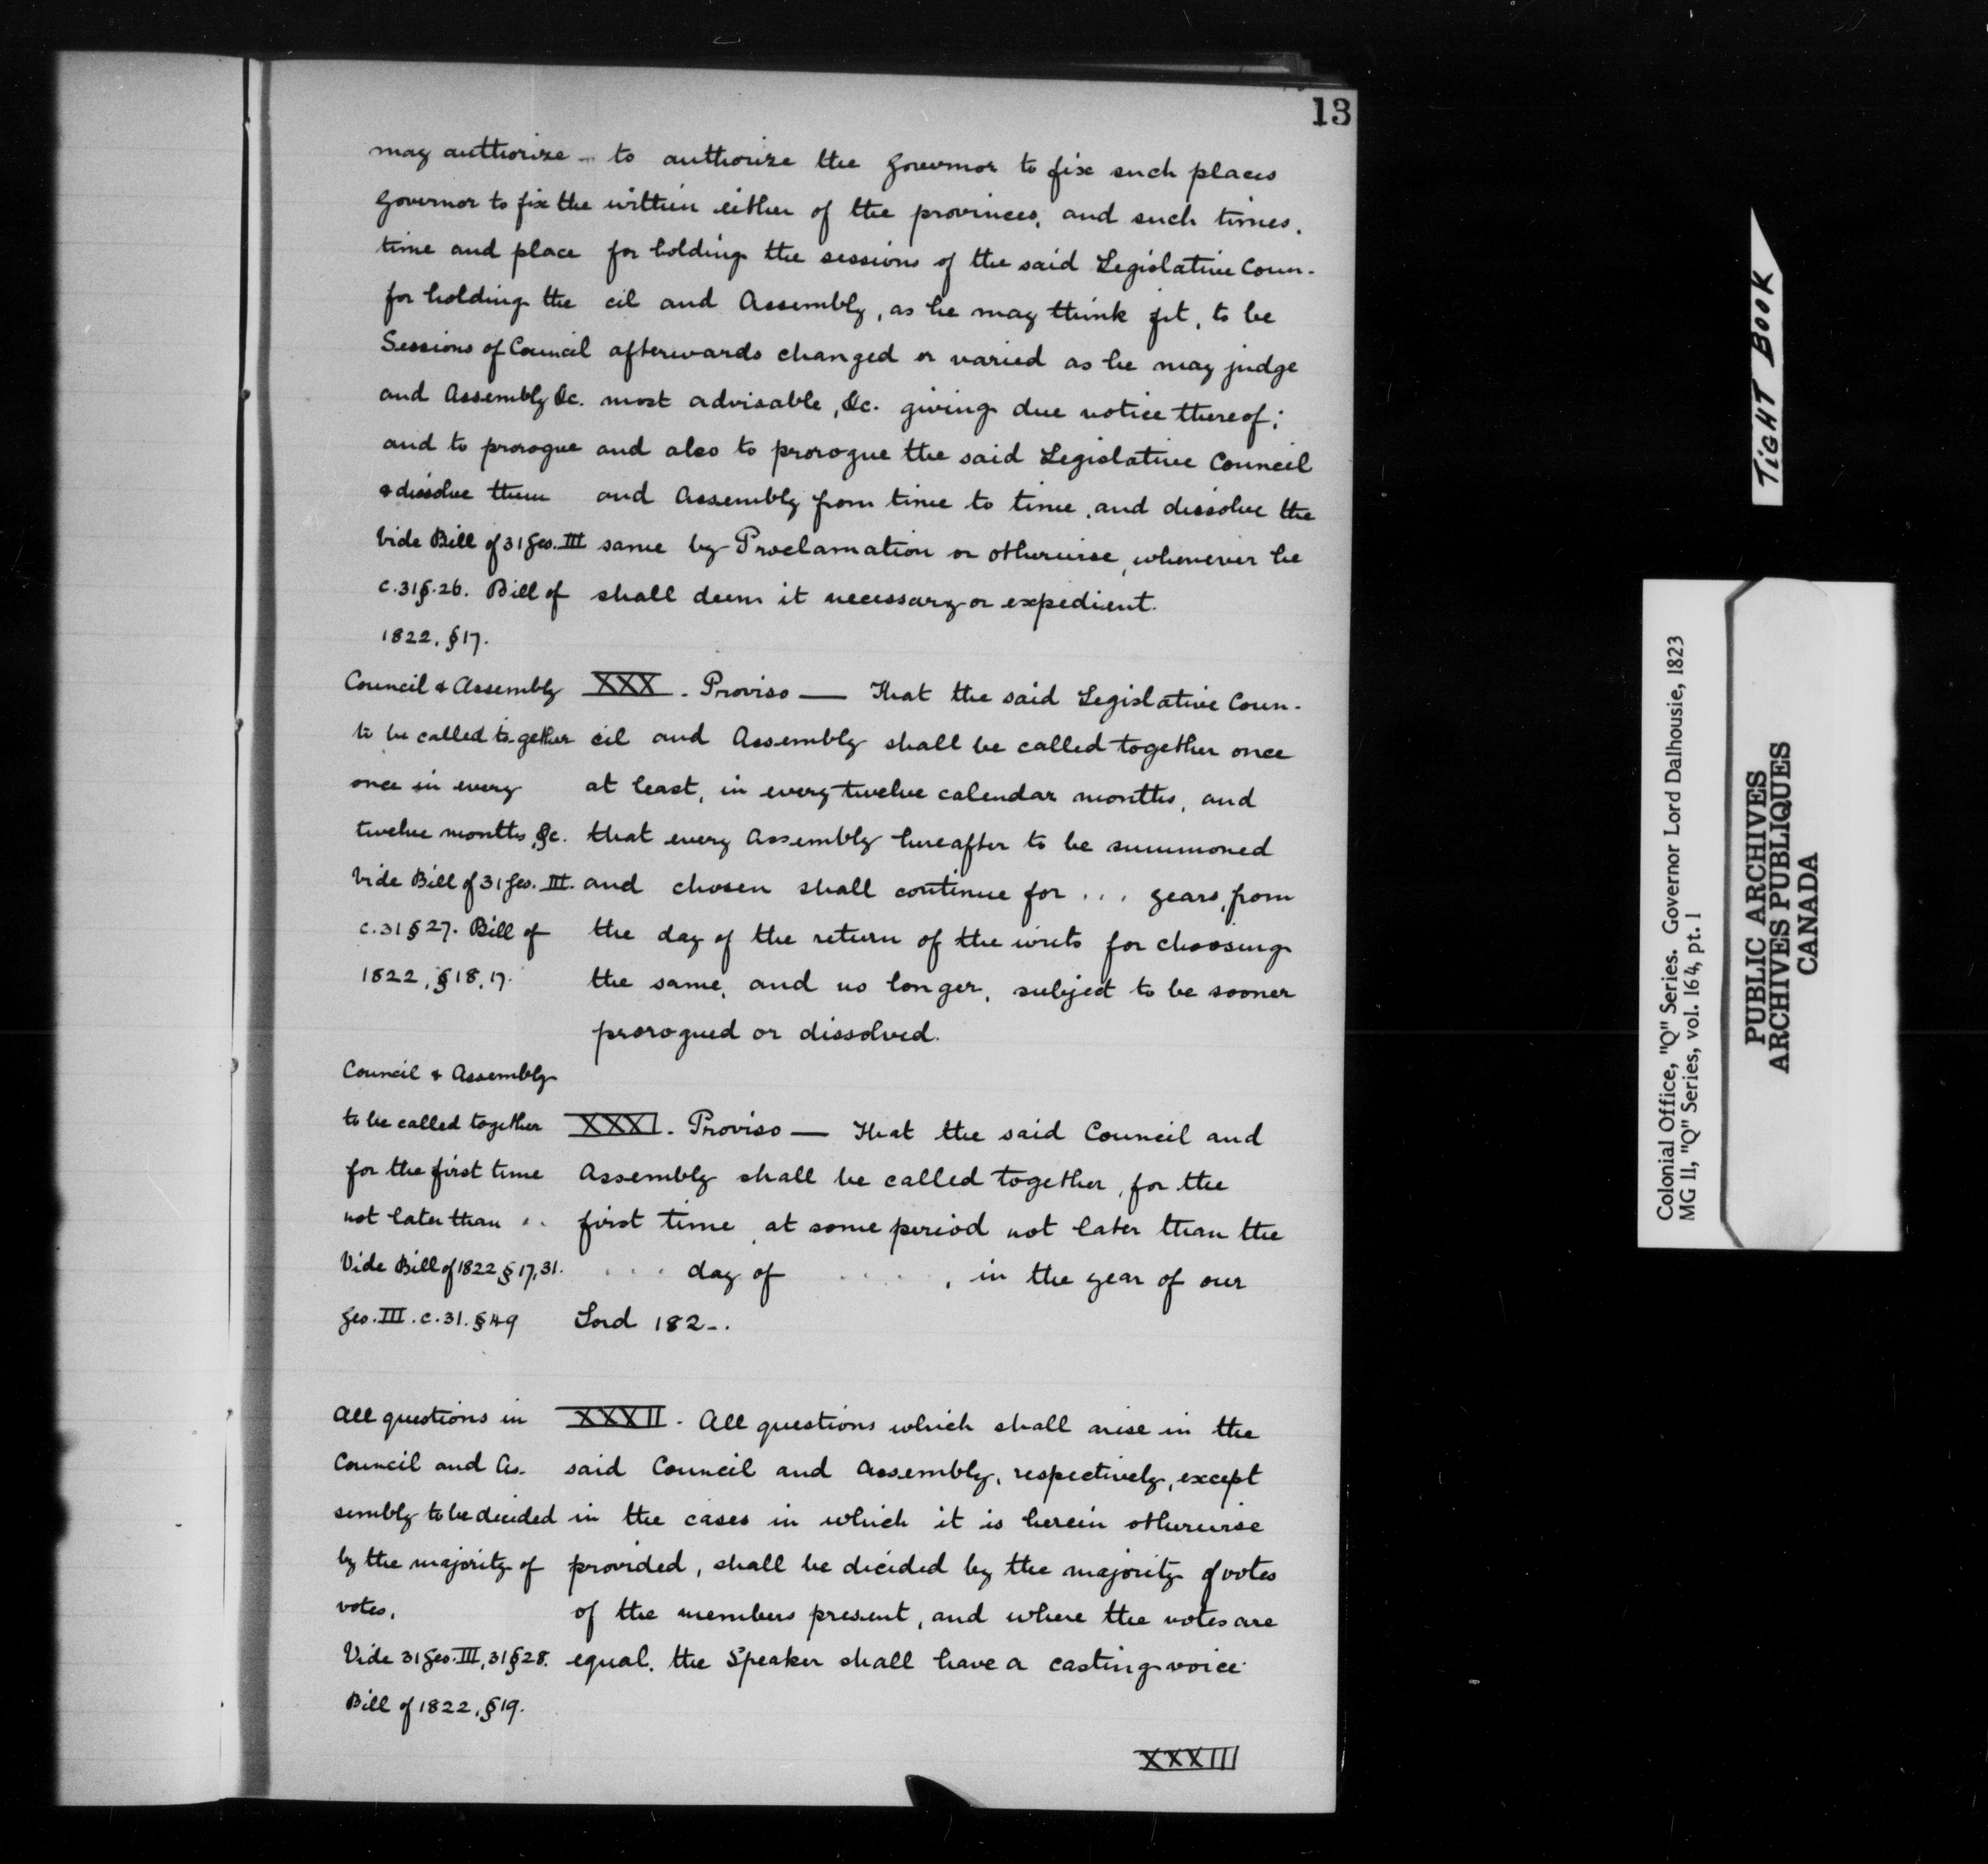 13
may authorize - to authorize the Governor to fix such places
Governor to fix the within either of the provinces, and such times,
time and place for holding the sessions of the said Legislative Coun-
for holding the cil and Assembly, as he may think fit, to be
Sessions of Council afterwards changed or varied as he may judge
and Assembly &c. most advisable, &c. giving due notice thereof;
and to prorogue and also to prorogue the said Legislative Council
& dissolve them and Assembly from time to time, and dissolve the
Vide Bill of 31 Geo. III same by Proclamation or otherwise, whenever he
c.31 §.26. Bill of shall deem it necessary or expedient.
1822. §17.
Council & Assembly XXX. Proviso — That the said Legislative Coun-
to be called to-gether cil and Assembly shall be called together once
once in every at least, in every twelve calendar months, and
twelve months, &c. that every Assembly hereafter to be summoned
Vide Bill of 31 Geo. III. and chosen shall continue for ... years, from
c.31 §27. Bill of the day of the return of the writs for choosing
1822, §18, 17. the same, and no longer, subject to be sooner
prorogued or dissolved.
Council & Assembly
to be called together XXXI. Proviso — That the said Council and
for the first time Assembly shall be called together, for the
not later than .. first time, at some period not later than the
Vide Bill of 1822 §17, 31. ... day of ....., in the year of our
Geo. III. c.31. §49 Lord 182-.
All questions in XXXII. All questions which shall arise in the
Council and As- said Council and Assembly, respectively, except
sembly to be decided in the cases in which it is herein otherwise
by the majority of provided, shall be decided by the majority of votes
votes. of the members present, and where the votes are
Vide 31 Geo. III, 31 §28. equal, the Speaker shall have a casting voice.
Bill of 1822, §19.
XXXIII
TIGHT BOOK
Colonial Office, "Q" Series. Governor Lord Dalhousie, 1823
MG 11, "Q" Series, vol. 164, pt. 1
PUBLIC ARCHIVES
ARCHIVES PUBLIQUES
CANADA